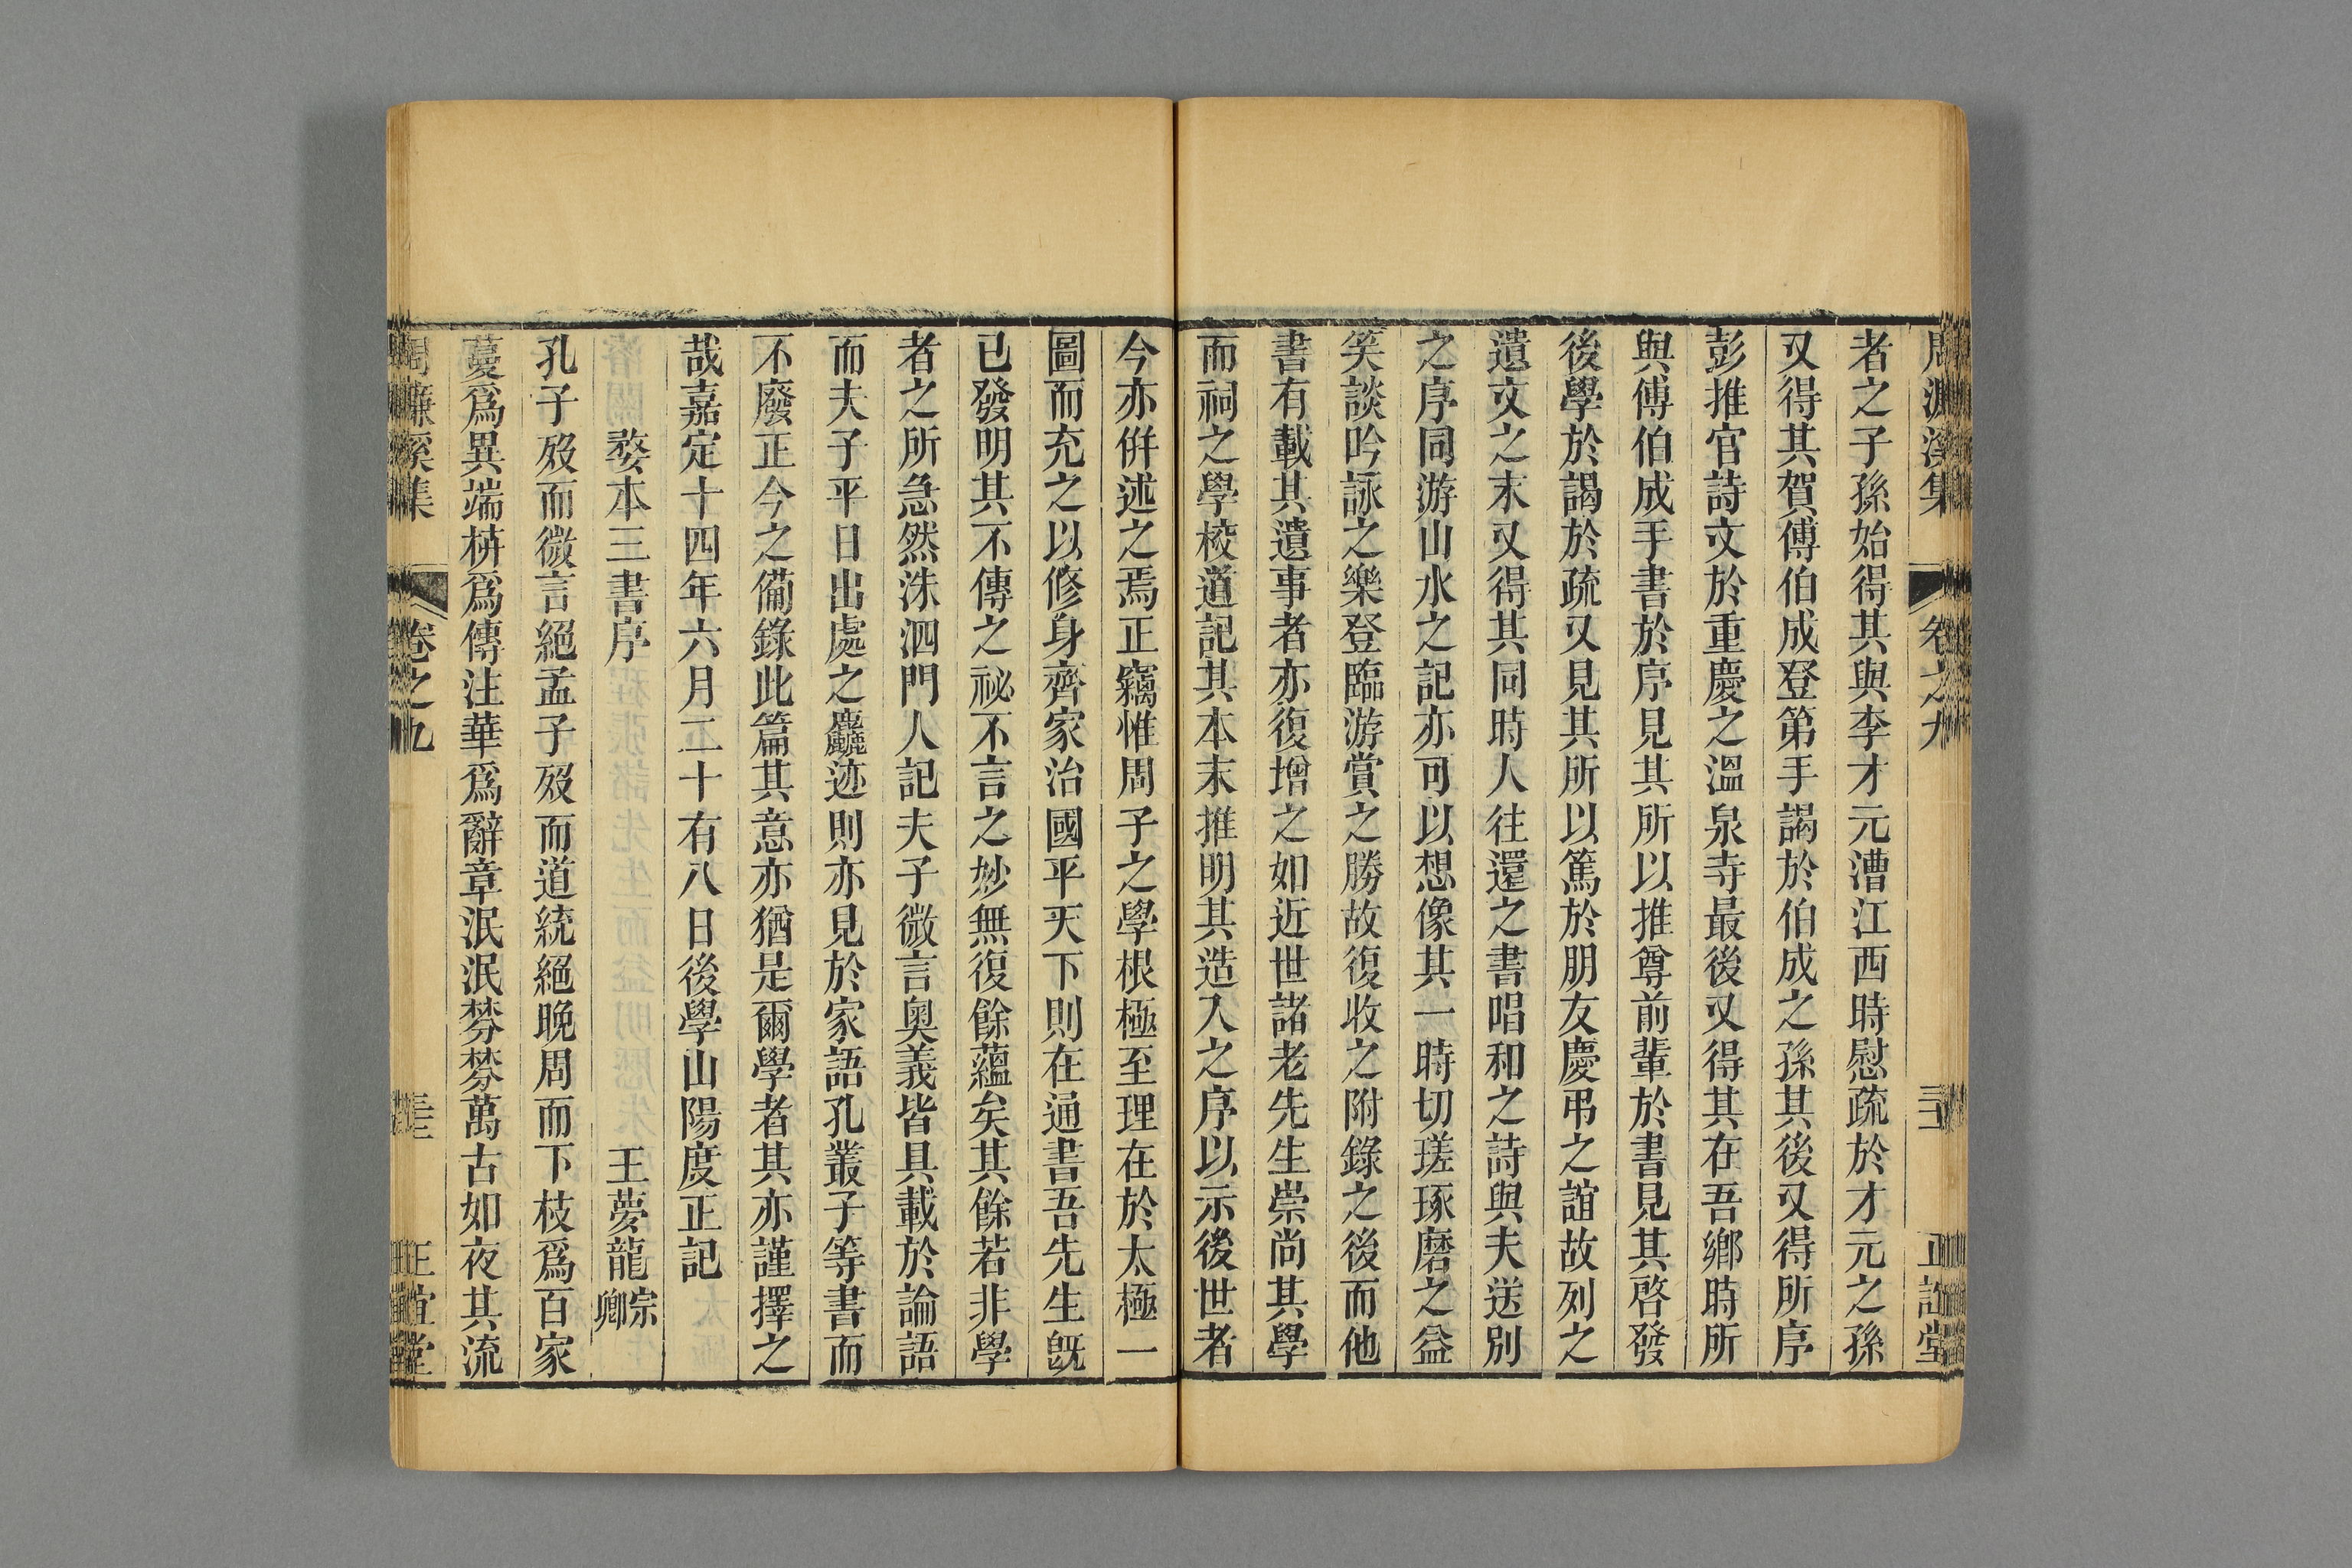 周濂溪集 卷之九 正誼堂
者之子孫始得其與李才元漕江西時慰疏於才元之孫
又得其賀傅伯成登第手謁於伯成之孫其後又得所序
彭推官詩文於重慶之溫泉寺最後又得其在吾鄉時所
與傅伯成手書於序見其所以推尊前輩於書見其啓發
後學於謁於疏又見其所以篤於朋友慶弔之誼故列之
遺文之末又得其同時人往還之書唱和之詩與夫送別
之序同游山水之記亦可以想像其一時切瑳琢磨之益
笑談吟詠之樂登臨游賞之勝故復收之附錄之後而他
書有載其遺事者亦復增之如近世諸老先生崇尚其學
而祠之學校道記其本末推明其造入之序以示後世者
今亦倂述之焉正竊惟周子之學根極至理在於太極一
圖而充之以修身齊家治國平天下則在通書吾先生旣
已發明其不傳之祕不言之妙無復餘蘊矣其餘若非學
者之所急然洙泗門人記夫子微言奧義皆具載於論語
而夫子平日出處之麤迹則亦見於家語孔叢子等書而
不廢正今之僃錄此篇其意亦猶是爾學者其亦謹擇之
哉嘉定十四年六月二十有八日後學山陽度正記
婺本三書序 王夢龍宗卿
孔子歿而微言絕孟子歿而道統絕晚周而下枝爲百家
蔓爲異端栟爲傳注華爲辭章泯泯棼棼萬古如夜其流
周濂溪集 卷之九 正誼堂